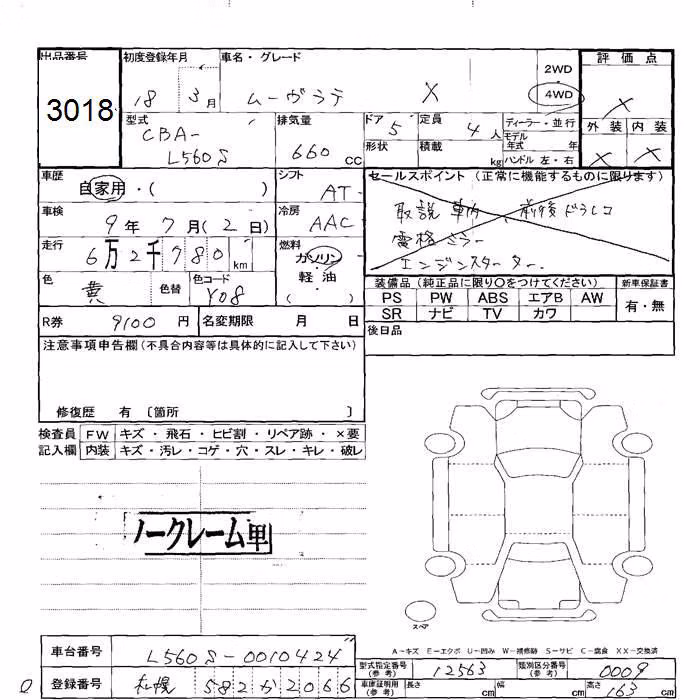 出品番号
3018
初度登録年月
18 3月
車名・グレード
ムーヴラテ X
2WD
4WD
評価点
×
外装 内装
× ×
型式
CBA-
L560S
排気量
660 cc
ドア 5
形状
定員 4人
積載 kg
ディーラー・並行
モデル年式 年
ハンドル 左・右
車歴
自家用・( )
シフト
AT
車検
9年7月(2日)
冷房
AAC
走行
6万2千780km
燃料
ガソリン
・
軽・油
( )
色
黄
色替
色コード
Y08
R券 9100円
名変期限 月 日
セールスポイント(正常に機能するものに限ります)
取説 車内 前後ドラレコ
電格ミラー
エンジンスターター
装備品(純正品に限り○をつけてください)
PS PW ABS エアB AW
SR ナビ TV カワ
新車保証書
有・無
後日品
注意事項申告欄(不具合内容等は具体的に記入して下さい)
修復歴 有〔箇所 〕
検査員記入欄
FW キズ・飛石・ヒビ割・リペア跡・×要
内装 キズ・汚レ・コゲ・穴・スレ・キレ・破レ
ノークレーム車
スペア
A-キズ E-エクボ U-凹み W-補修跡 S-サビ C-腐食 XX-交換済
車台番号 L560S-0010424
登録番号 札幌 582か2066
型式指定番号(参考) 12563
類別区分番号(参考) 0009
車庫証明用(参考) 長さ cm 幅 cm 高さ 163 cm